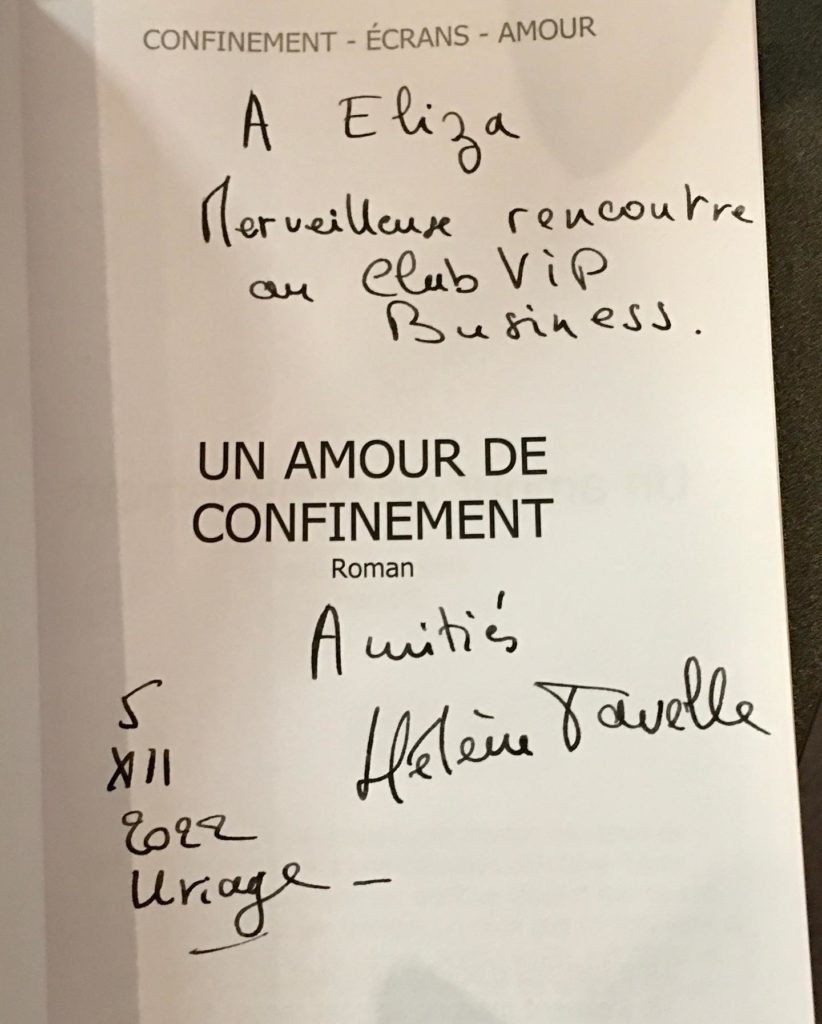 CONFINEMENT - ÉCRANS - AMOUR
A Eliza
Merveilleuse rencontre
au Club ViP
Business.
UN AMOUR DE
CONFINEMENT
Roman
Amitiés
Hélène Tavelle
5
XII
2022
Uriage -